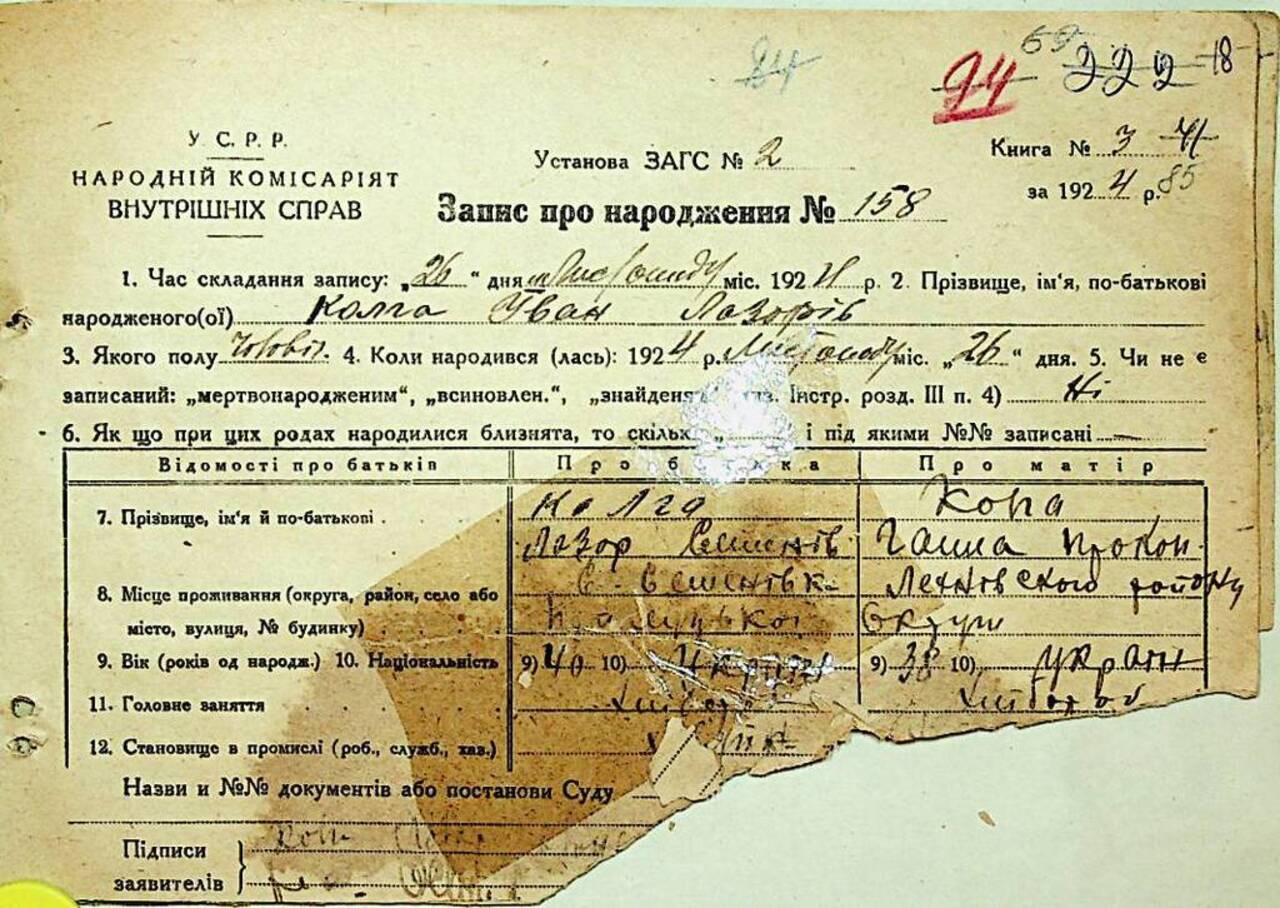 84
94 69 222 18
У. С. Р. Р.
НАРОДНІЙ КОМІСАРІЯТ
ВНУТРІШНІХ СПРАВ
Установа ЗАГС № 2
Книга № 3
за 1924 р. 85
Запис про народження № 158
1. Час складання запису: „26“ дня Листопаду міс. 1924 р. 2. Прізвище, ім'я, по-батькові
народженого(ої) Колга Іван Лазорів
3. Якого полу Чоловіч. 4. Коли народився (лась): 1924 р. Листопаду міс. „26“ дня. 5. Чи не є
записаний: „мертвонародженим“, „всиновлен.“, „знайденя Інстр. розд. III п. 4) Ні
6. Як що при цих родах народилися близнята, то скільк „ і під якими №№ записані
Відомості про батьків Про батька Про матір
7. Прізвище, ім'я й по-батькові Колга
Лазор Семенів
Ганна Прокоп
8. Місце проживання (округа, район, село або
місто, вулиця, № будинку)
району
Прилуцької Округи
9. Вік (років од народж.) 10. Національність 9) 40 10) Україн 9) 38 10) Україн
11. Головне заняття Хлібороб Хлібороб
12. Становище в промислі (роб., служб., хаз.)
Назви и №№ документів або постанови Суду
Підписи
заявителів